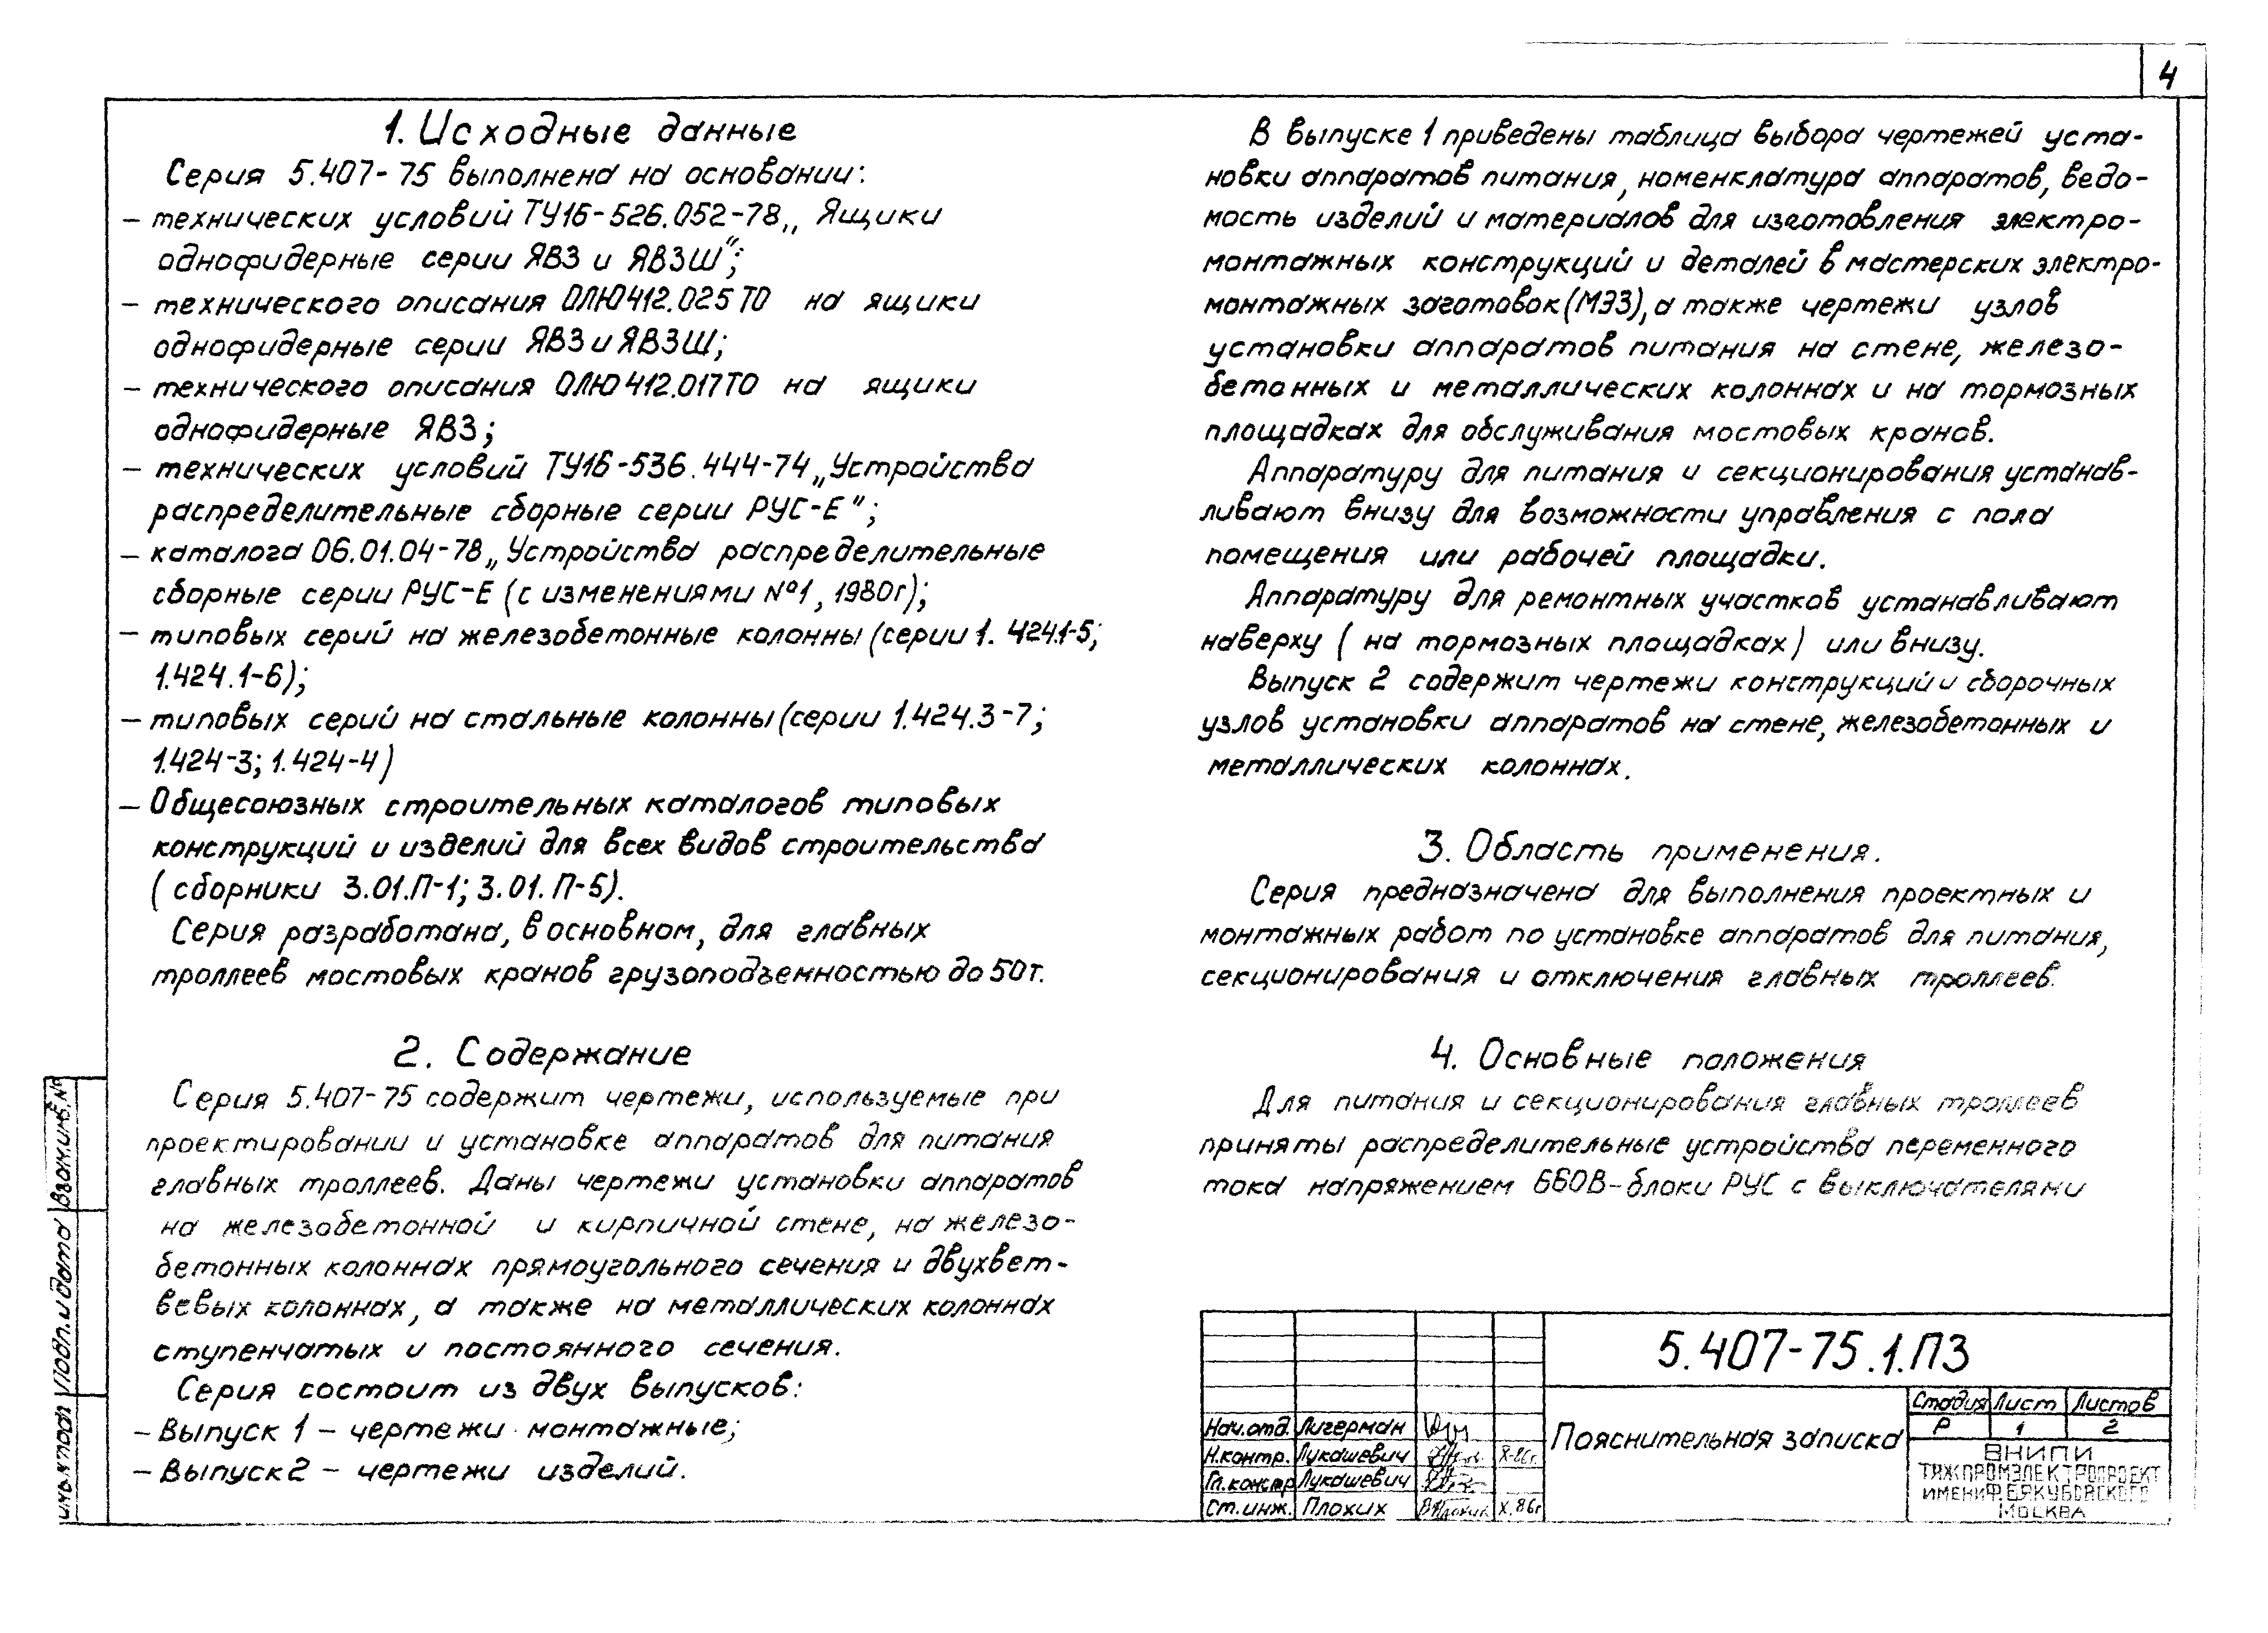 4
1. Исходные данные
Серия 5.407-75 выполнена на основании:
– технических условий ТУ16-526.052-78 „Ящики
однофидерные серии ЯВЗ и ЯВЗШ";
– технического описания ОЛЮ412.025ТО на ящики
однофидерные серии ЯВЗ и ЯВЗШ;
– технического описания ОЛЮ412.017ТО на ящики
однофидерные ЯВЗ;
– технических условий ТУ16-536.444-74 „Устройства
распределительные сборные серии РУС-Е";
– каталога 06.01.04-78 „Устройства распределительные
сборные серии РУС-Е (с изменениями №1, 1980г);
– типовых серий на железобетонные колонны (серии 1.424.1-5;
1.424.1-6);
– типовых серий на стальные колонны (серии 1.424.3-7;
1.424-3; 1.424-4)
– Общесоюзных строительных каталогов типовых
конструкций и изделий для всех видов строительства
(сборники 3.01.П-1; 3.01.П-5).
Серия разработана, в основном, для главных
троллеев мостовых кранов грузоподъемностью до 50т.
2. Содержание
Серия 5.407-75 содержит чертежи, используемые при
проектировании и установке аппаратов для питания
главных троллеев. Даны чертежи установки аппаратов
на железобетонной и кирпичной стене, на железо-
бетонных колоннах прямоугольного сечения и двухвет-
вевых колоннах, а также на металлических колоннах
ступенчатых и постоянного сечения.
Серия состоит из двух выпусков:
– Выпуск 1 – чертежи монтажные;
– Выпуск 2 – чертежи изделий.
В выпуске 1 приведены таблица выбора чертежей уста-
новки аппаратов питания, номенклатура аппаратов, ведо-
мость изделий и материалов для изготовления электро-
монтажных конструкций и деталей в мастерских электро-
монтажных заготовок (МЭЗ), а также чертежи узлов
установки аппаратов питания на стене, железо-
бетонных и металлических колоннах и на тормозных
площадках для обслуживания мостовых кранов.
Аппаратуру для питания и секционирования устанав-
ливают внизу для возможности управления с пола
помещения или рабочей площадки.
Аппаратуру для ремонтных участков устанавливают
наверху (на тормозных площадках) или внизу.
Выпуск 2 содержит чертежи конструкций и сборочных
узлов установки аппаратов на стене, железобетонных и
металлических колоннах.
3. Область применения.
Серия предназначена для выполнения проектных и
монтажных работ по установке аппаратов для питания,
секционирования и отключения главных троллеев.
4. Основные положения
Для питания и секционирования главных троллеев
приняты распределительные устройства переменного
тока напряжением 660В – блоки РУС с выключателями
5.407-75.1.ПЗ
Пояснительная записка
Стадия Лист Листов
Р 1 2
ВНИПИ
ТЯЖПРОМЭЛЕКТРОПРОЕКТ
ИМЕНИ Ф.Б.ЯКУБОВСКОГО
МОСКВА
Нач.отд. Лигерман
Н.контр. Лукашевич X-86г.
Гл.констр Лукашевич
Ст.инж. Плохих X.86г
Инв.№подл Подп. и дата Взам.инв.№